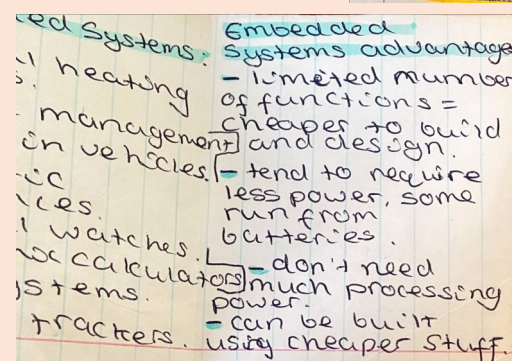 ed Systems:
l heating
s.
management
in vehicles.
ic
ices.
l watches.
calculators
systems.
trackers.
Embedded
Systems advantage
- limeted number
of functions =
cheaper to build
and design.
- tend to require
less power, some
run from
batteries.
- don't need
much processing
power.
- can be built
using cheaper stuff.